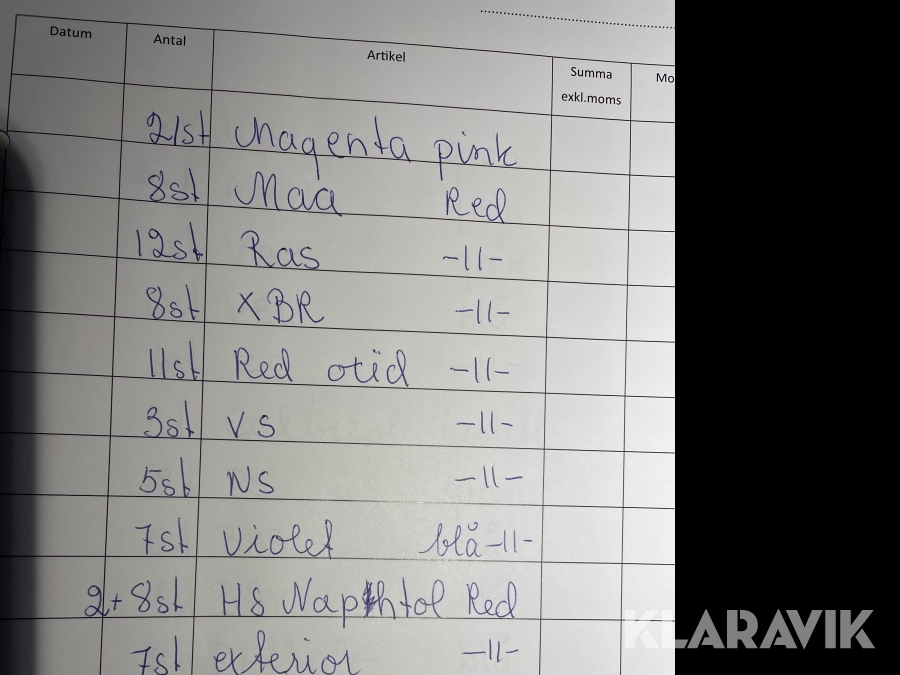 Datum Antal Artikel Summa exkl.moms Mo
21st Magenta pink
8st Maa Red
12st Ras -11-
8st XBR -11-
11st Red otid -11-
3st VS -11-
5st NS -11-
7st Violet blå -11-
2+8st HS Naphtol Red
7st exterior -11-
KLARAVIK